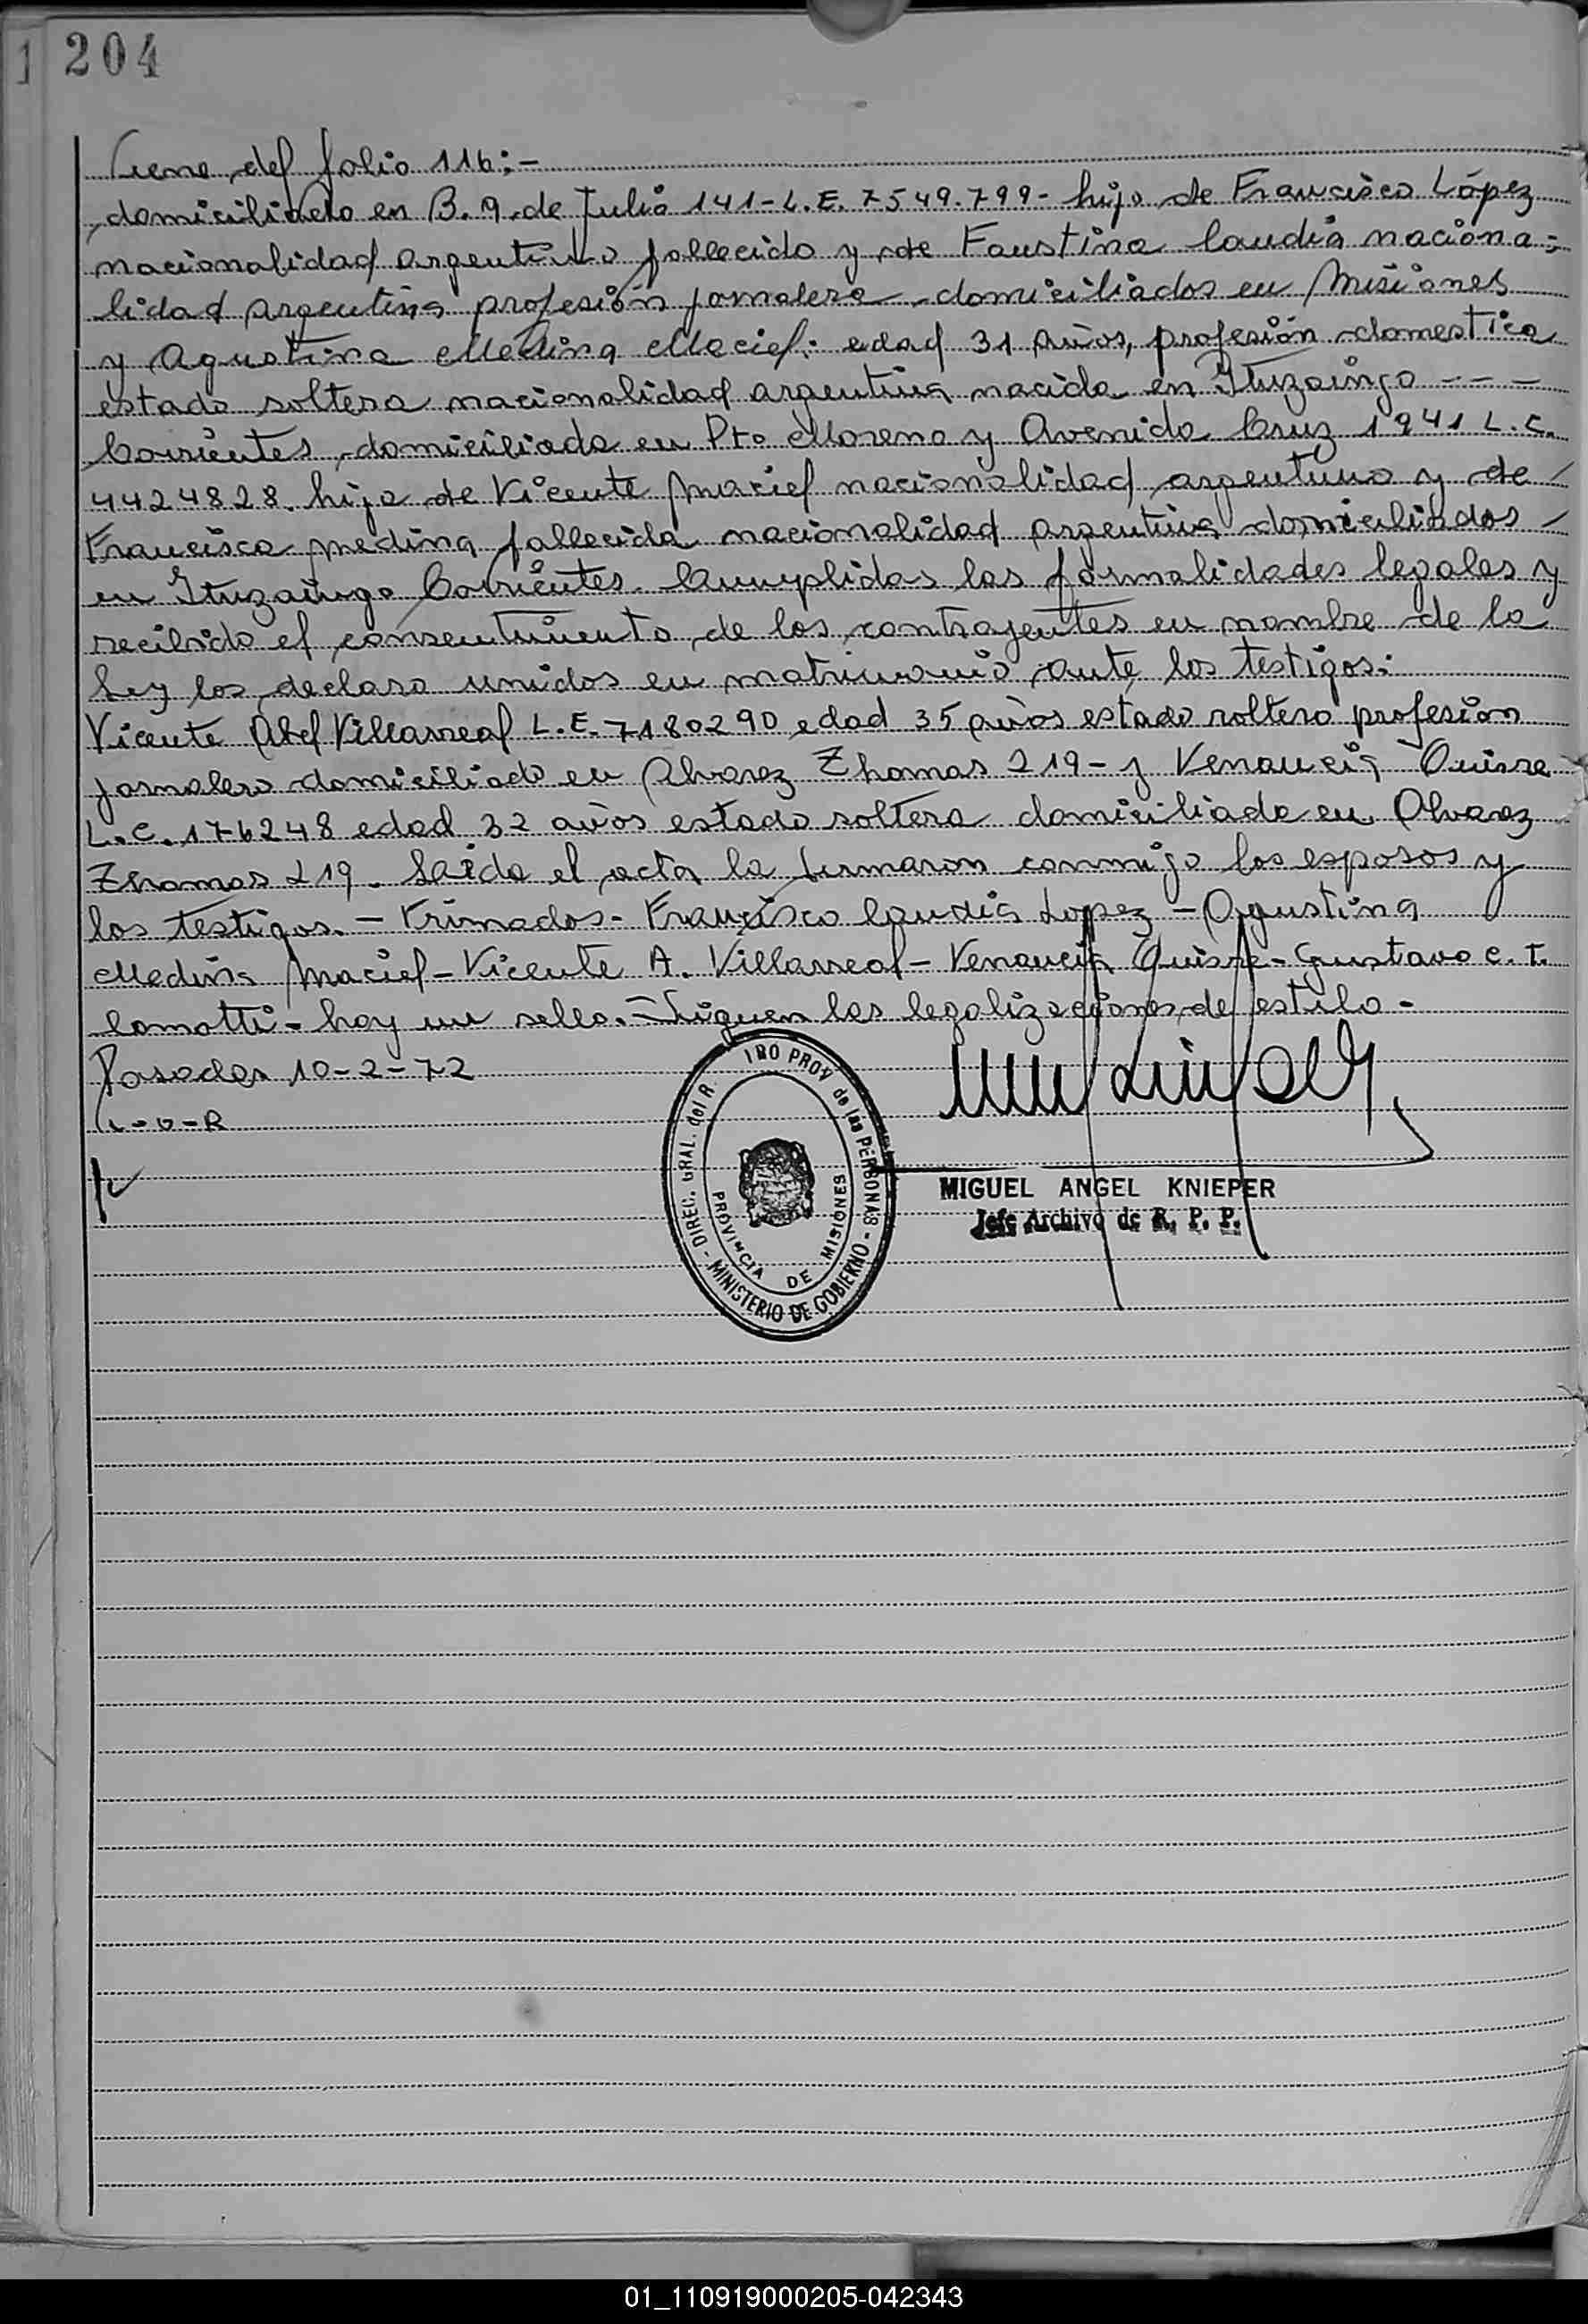 204
Viene del folio 116:-
domiciliado en B. 9 de Julio 141- L.E. 7549.799- hijo de Francisco López
nacionalidad argentino fallecido y de Faustina Candia naciona-
lidad argentina profesión jornalera domiciliados en Misiones
y Agustina Medina Maciel: edad 31 años, profesión domestica
estado soltera nacionalidad argentina nacida en Ituzaingo ---
Corrientes, domiciliada en Pto Moreno y Avenida Cruz 1941 L.C.
4424828. hija de Vicente Maciel nacionalidad argentino y de
Francisca Medina fallecida nacionalidad argentina domiciliados
en Ituzaingo Corrientes. Cumplidas las formalidades legales y
recibido el consentimiento de los contrayentes en nombre de la
Ley los declaro unidos en matrimonio ante los testigos:
Vicente Abel Villarreal L.E. 7180290 edad 35 años estado soltero profesión
jornalero domiciliado en Alvarez Thomas 219- y Venancia
L.C. 176248 edad 32 años estado soltera domiciliada en Alvarez
Thomas 219. Leida el acta la firmaron conmigo los esposos y
los testigos. - Firmados- Francisco Candia Lopez - Agustina
Medina Maciel - Vicente A. Villarreal - Venancia - Gustavo C. T.
Lamotti - hay un sello. - Siguen las legalizaciones de estilo -
Posadas 10-2-72
DIREC. GRAL. del R. PROV de las PERSONAS - MINISTERIO DE GOBIERNO -
PROVINCIA DE MISIONES
MIGUEL ANGEL KNIEPER
Jefe Archivo de R. P. P.
01_110919000205-042343